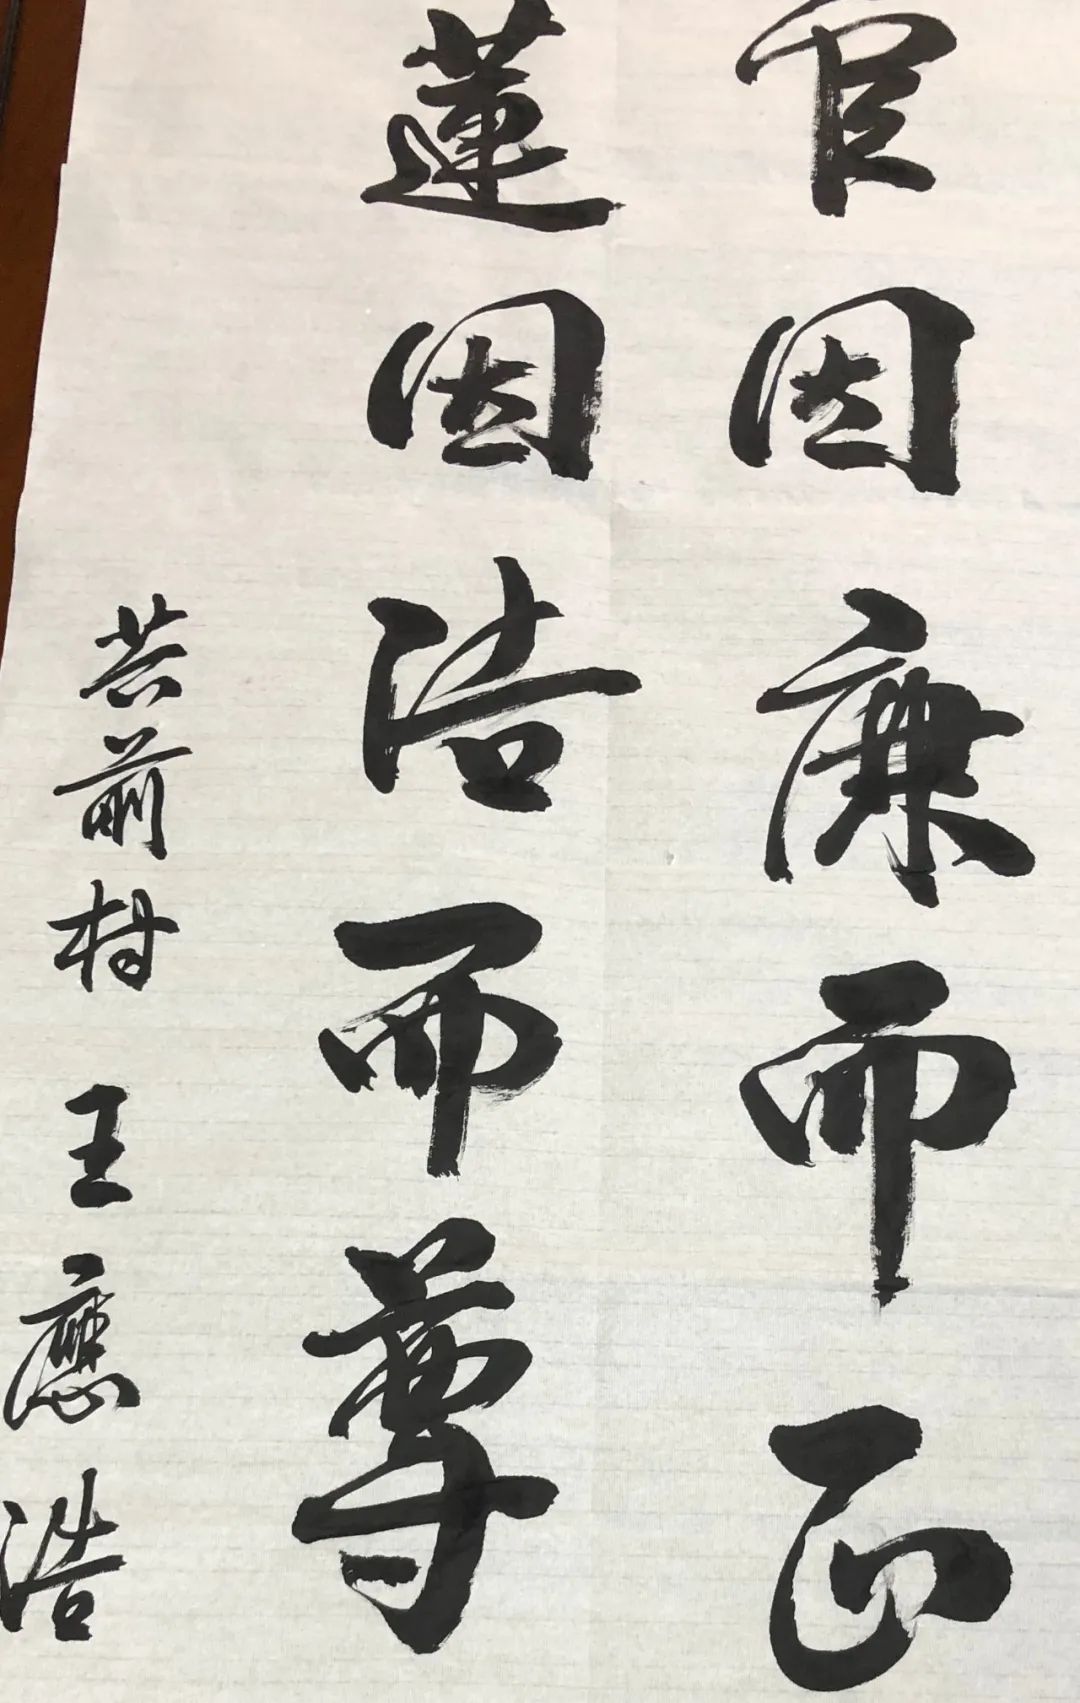 官因廉而正
蓮因洁而尊
前村 王應浩